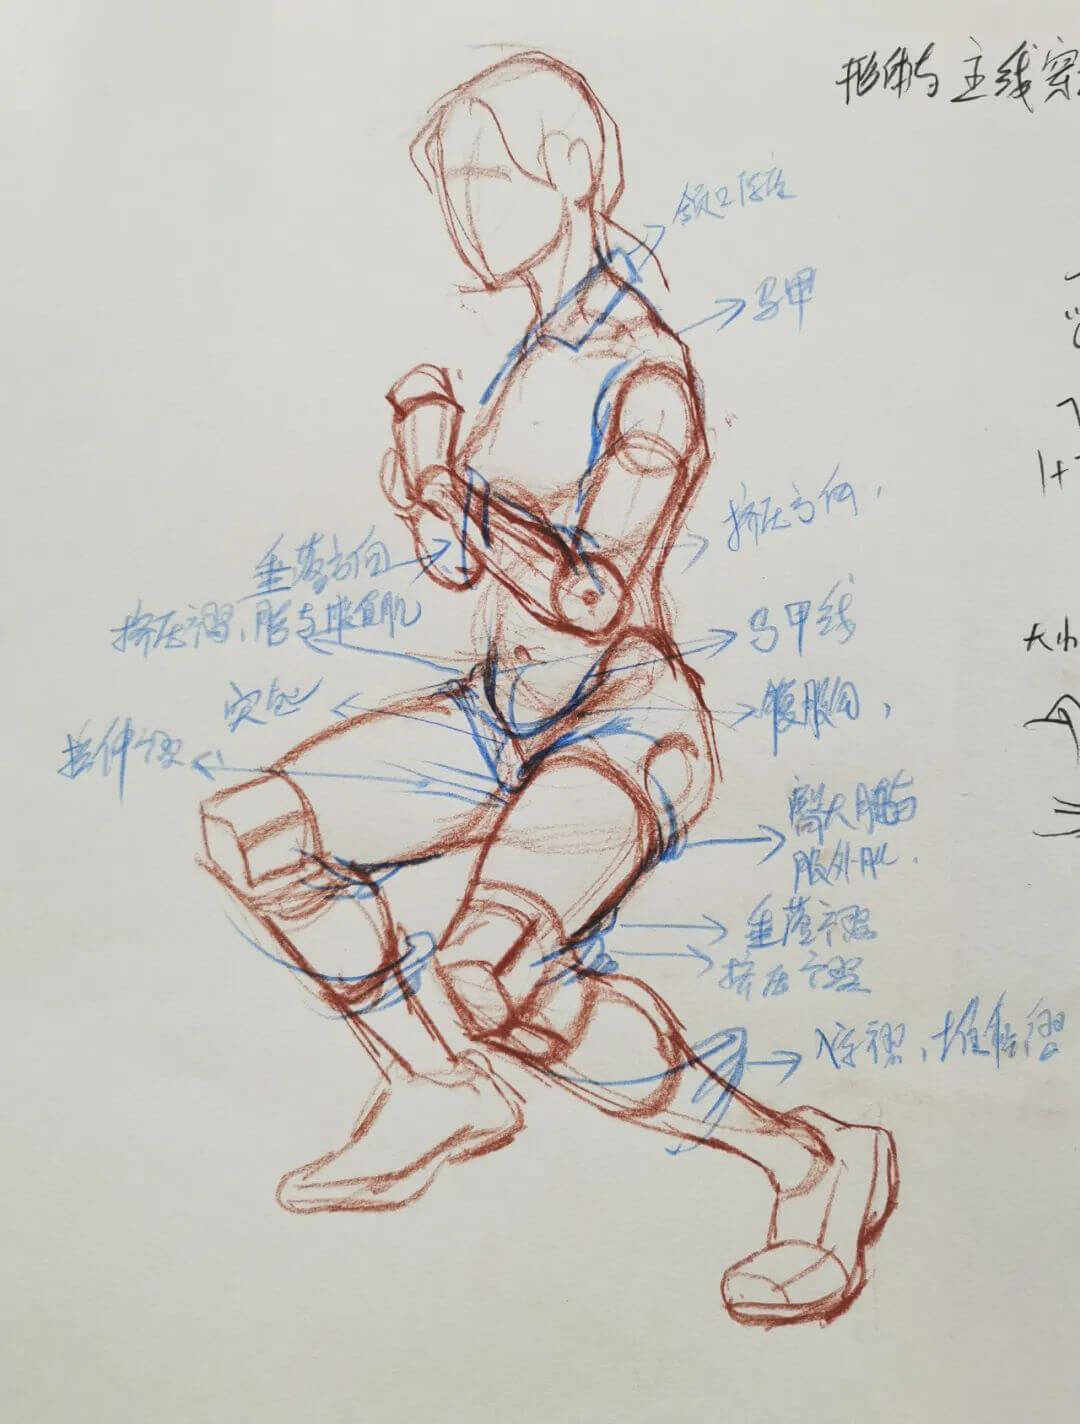 形体与主线穿
领口厚度
马甲
挤压方向,
垂落方向
挤压褶、
马甲线
突起
拉伸褶
腹股沟,
臀大肌与
股外肌.
垂落褶
挤压褶
堆积褶
1+
大小